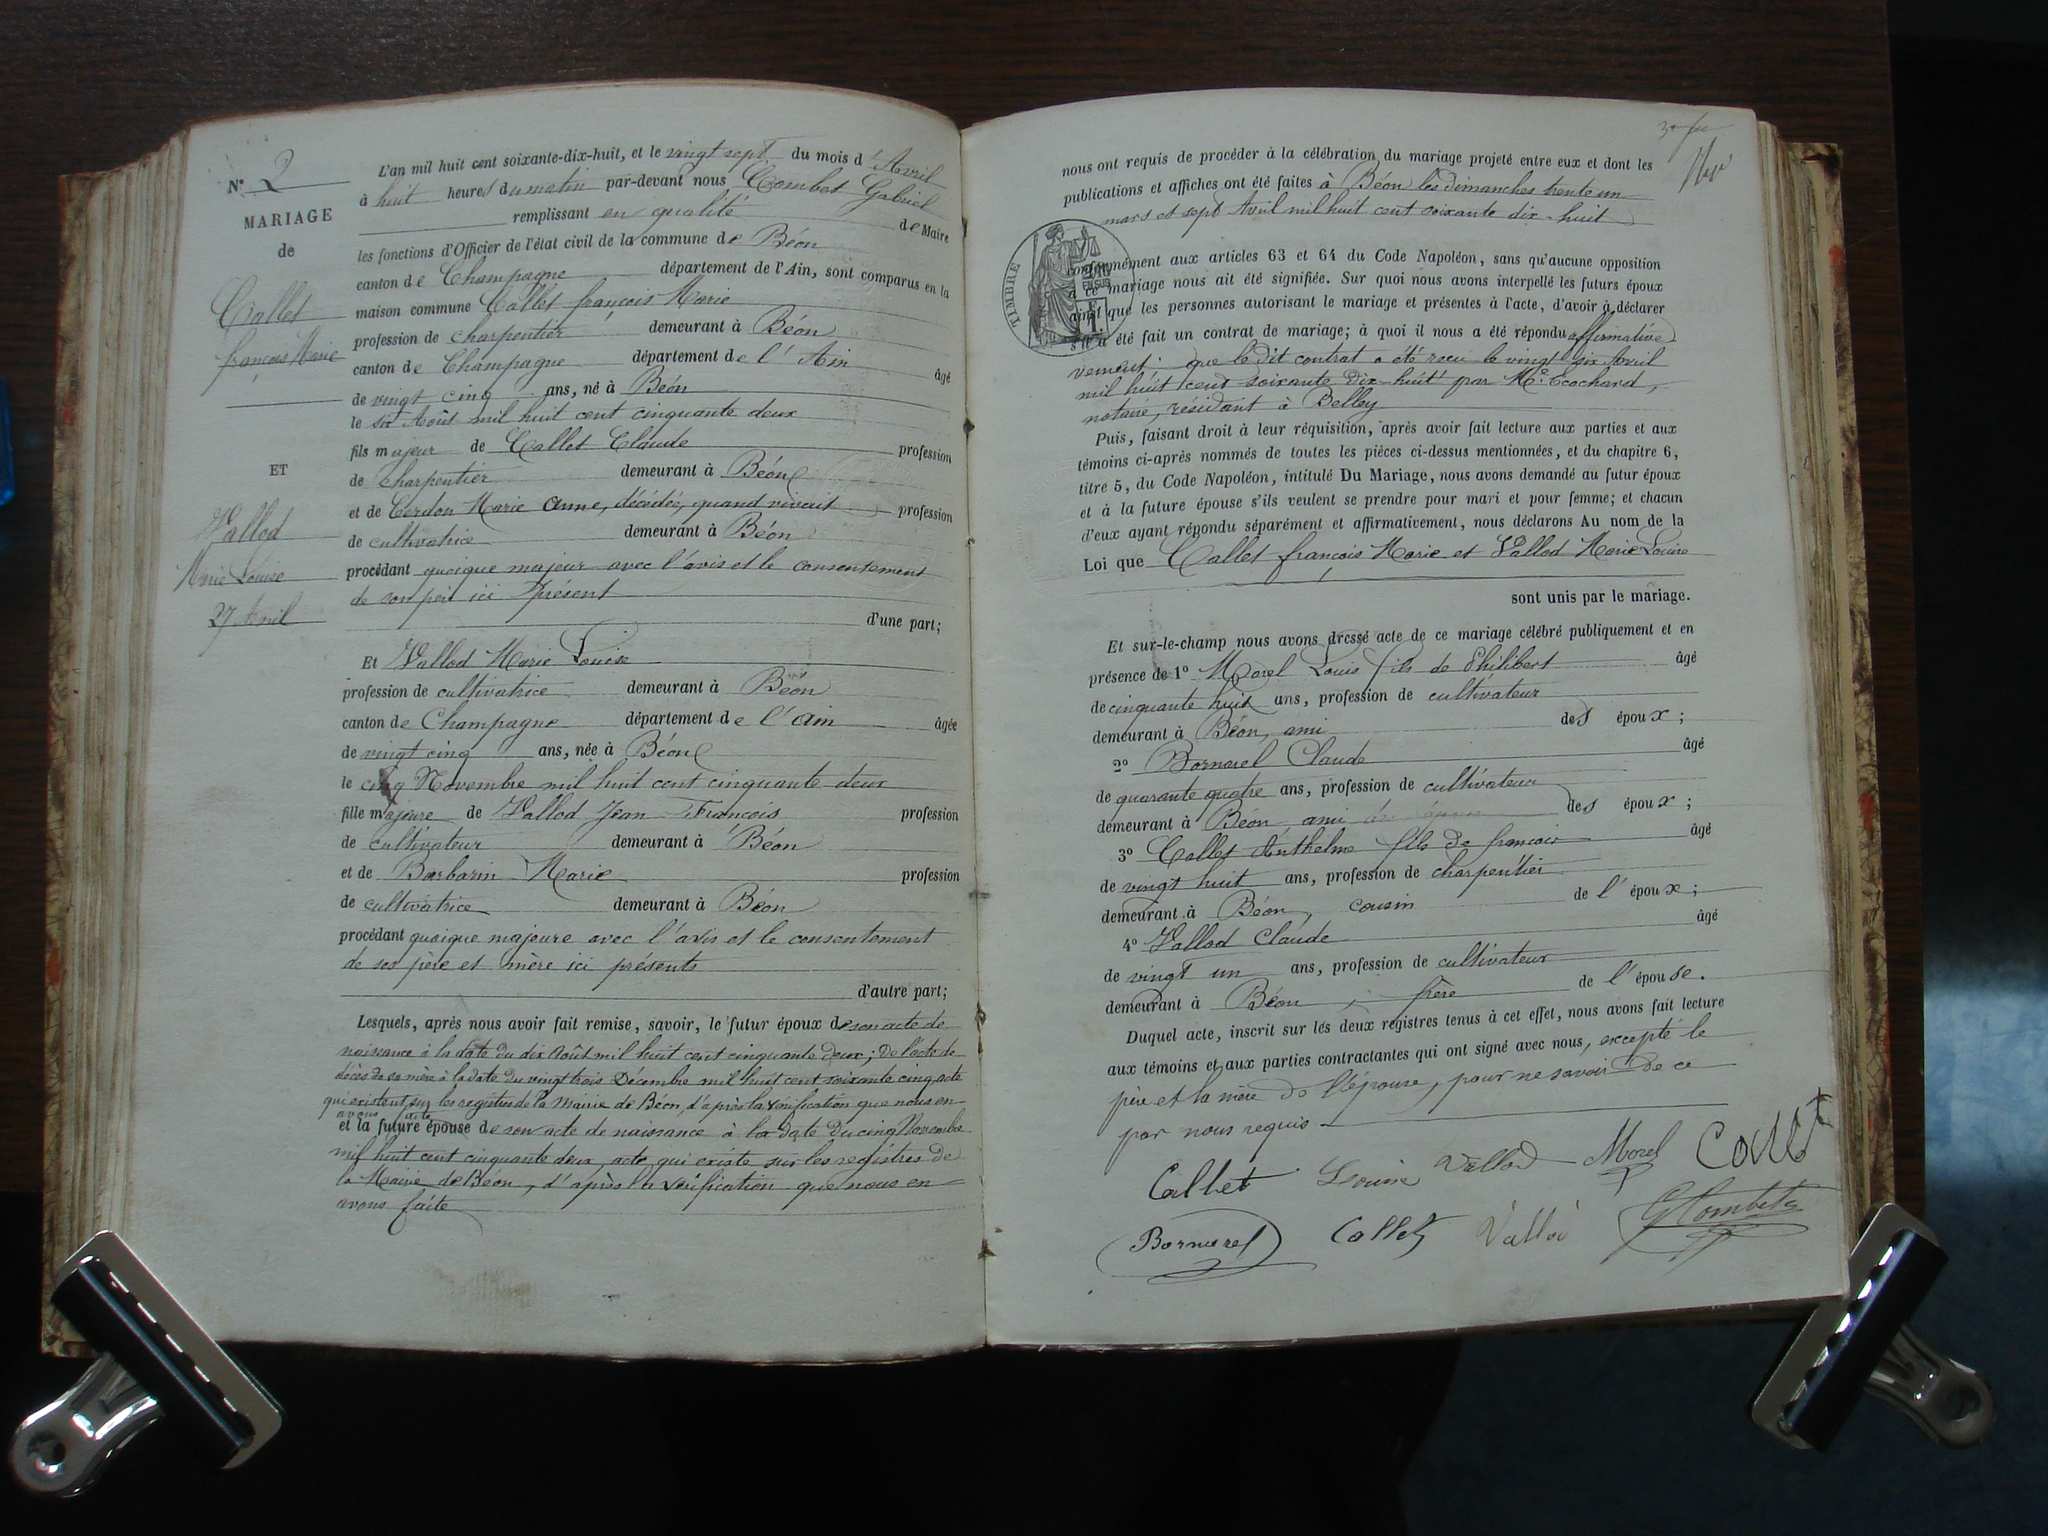 N° 2
MARIAGE
de
Callet
françois Marie
ET
Vallod
Marie Louise
27 Avril
L'an mil huit cent soixante-dix-huit, et le vingt sept du mois d'Avril
à huit heures du matin par-devant nous Combet Gabriel
remplissant en qualité de Maire
les fonctions d'Officier de l'état civil de la commune de Béon
canton de Champagne département de l'Ain, sont comparus en la
maison commune Callet françois Marie
profession de charpentier demeurant à Béon
canton de Champagne département de l'Ain âgé
de vingt cinq ans, né à Béon
le six Août mil huit cent cinquante deux
fils majeur de Callet Claude profession
de charpentier demeurant à Béon
et de Cerdon Marie Anne, décédée, quand vivait profession
de cultivatrice demeurant à Béon
procédant quoique majeur avec l'avis et le consentement
de son père ici présent
d'une part;
Et Vallod Marie Louise
profession de cultivatrice demeurant à Béon
canton de Champagne département de l'Ain âgée
de vingt cinq ans, née à Béon
le cinq Novembre mil huit cent cinquante deux
fille majeure de Vallod Jean François profession
de cultivateur demeurant à Béon
et de Barbarin Marie profession
de cultivatrice demeurant à Béon
procédant quoique majeure avec l'avis et le consentement
de ses père et mère ici présents
d'autre part;
Lesquels, après nous avoir fait remise, savoir, le futur époux de son acte de
naissance à la date du dix Août mil huit cent cinquante deux; De l'acte de
décès de sa mère à la date du vingt trois Décembre mil huit cent soixante cinq, acte
qui existent sur les registres de la Mairie de Béon, d'après la vérification que nous en
avons faite
et la future épouse de son acte de naissance à la date du cinq Novembre
mil huit cent cinquante deux, acte qui existe sur les registres de
la Mairie de Béon, d'après la vérification que nous en
avons faite
nous ont requis de procéder à la célébration du mariage projeté entre eux et dont les
publications et affiches ont été faites à Béon les dimanches trente un
mars et sept Avril mil huit cent soixante dix-huit
TIMBRE
conformément aux articles 63 et 64 du Code Napoléon, sans qu'aucune opposition
à ce mariage nous ait été signifiée. Sur quoi nous avons interpellé les futurs époux
ainsi que les personnes autorisant le mariage et présentes à l'acte, d'avoir à déclarer
s'il a été fait un contrat de mariage; à quoi il nous a été répondu affirmative
vement, que le dit contrat a été reçu le vingt six Avril
mil huit cent soixante dix huit par Me Cochard,
notaire, résidant à Belley
Puis, faisant droit à leur réquisition, après avoir fait lecture aux parties et aux
témoins ci-après nommés de toutes les pièces ci-dessus mentionnées, et du chapitre 6,
titre 5, du Code Napoléon, intitulé Du Mariage, nous avons demandé au futur époux
et à la future épouse s'ils veulent se prendre pour mari et pour femme; et chacun
d'eux ayant répondu séparément et affirmativement, nous déclarons Au nom de la
Loi que Callet françois Marie et Vallod Marie Louise
sont unis par le mariage.
Et sur-le-champ nous avons dressé acte de ce mariage célébré publiquement et en
présence de 1° Morel Louis fils de Philibert âgé
de cinquante huit ans, profession de cultivateur
demeurant à Béon, ami des époux;
2° Bornarel Claude âgé
de quarante quatre ans, profession de cultivateur
demeurant à Béon ami des époux;
3° Callet Anthelme fils de françois âgé
de vingt huit ans, profession de charpentier
demeurant à Béon, cousin de l'époux;
4° Vallod Claude âgé
de vingt un ans, profession de cultivateur
demeurant à Béon, frère de l'épouse.
Duquel acte, inscrit sur les deux registres tenus à cet effet, nous avons fait lecture
aux témoins et aux parties contractantes qui ont signé avec nous, excepté le
père et la mère de l'épouse, pour ne savoir de ce
par nous requis
Callet Louise Vallod Morel Callet
Bornarel Callet Vallod G Combet